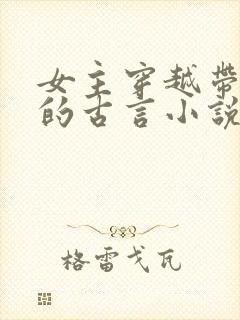 女主穿越带
的古言小说
格雷戈瓦